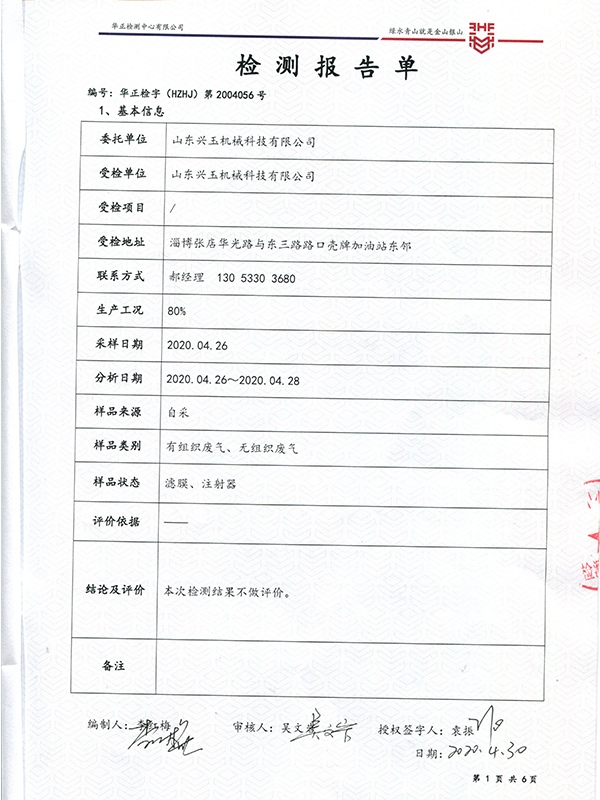 华正检测中心有限公司
绿水青山就是金山银山
检测报告单
编号：华正检字（HZHJ）第2004056号
1、基本信息
委托单位 山东兴玉机械科技有限公司
受检单位 山东兴玉机械科技有限公司
受检项目 /
受检地址 淄博张店华光路与东三路路口壳牌加油站东邻
联系方式 郝经理 130 5330 3680
生产工况 80%
采样日期 2020.04.26
分析日期 2020.04.26～2020.04.28
样品来源 自采
样品类别 有组织废气、无组织废气
样品状态 滤膜、注射器
评价依据 ——
结论及评价 本次检测结果不做评价。
备注
编制人： 审核人：吴文 授权签字人：袁振
日期：2020.4.30
第 1 页 共 6 页